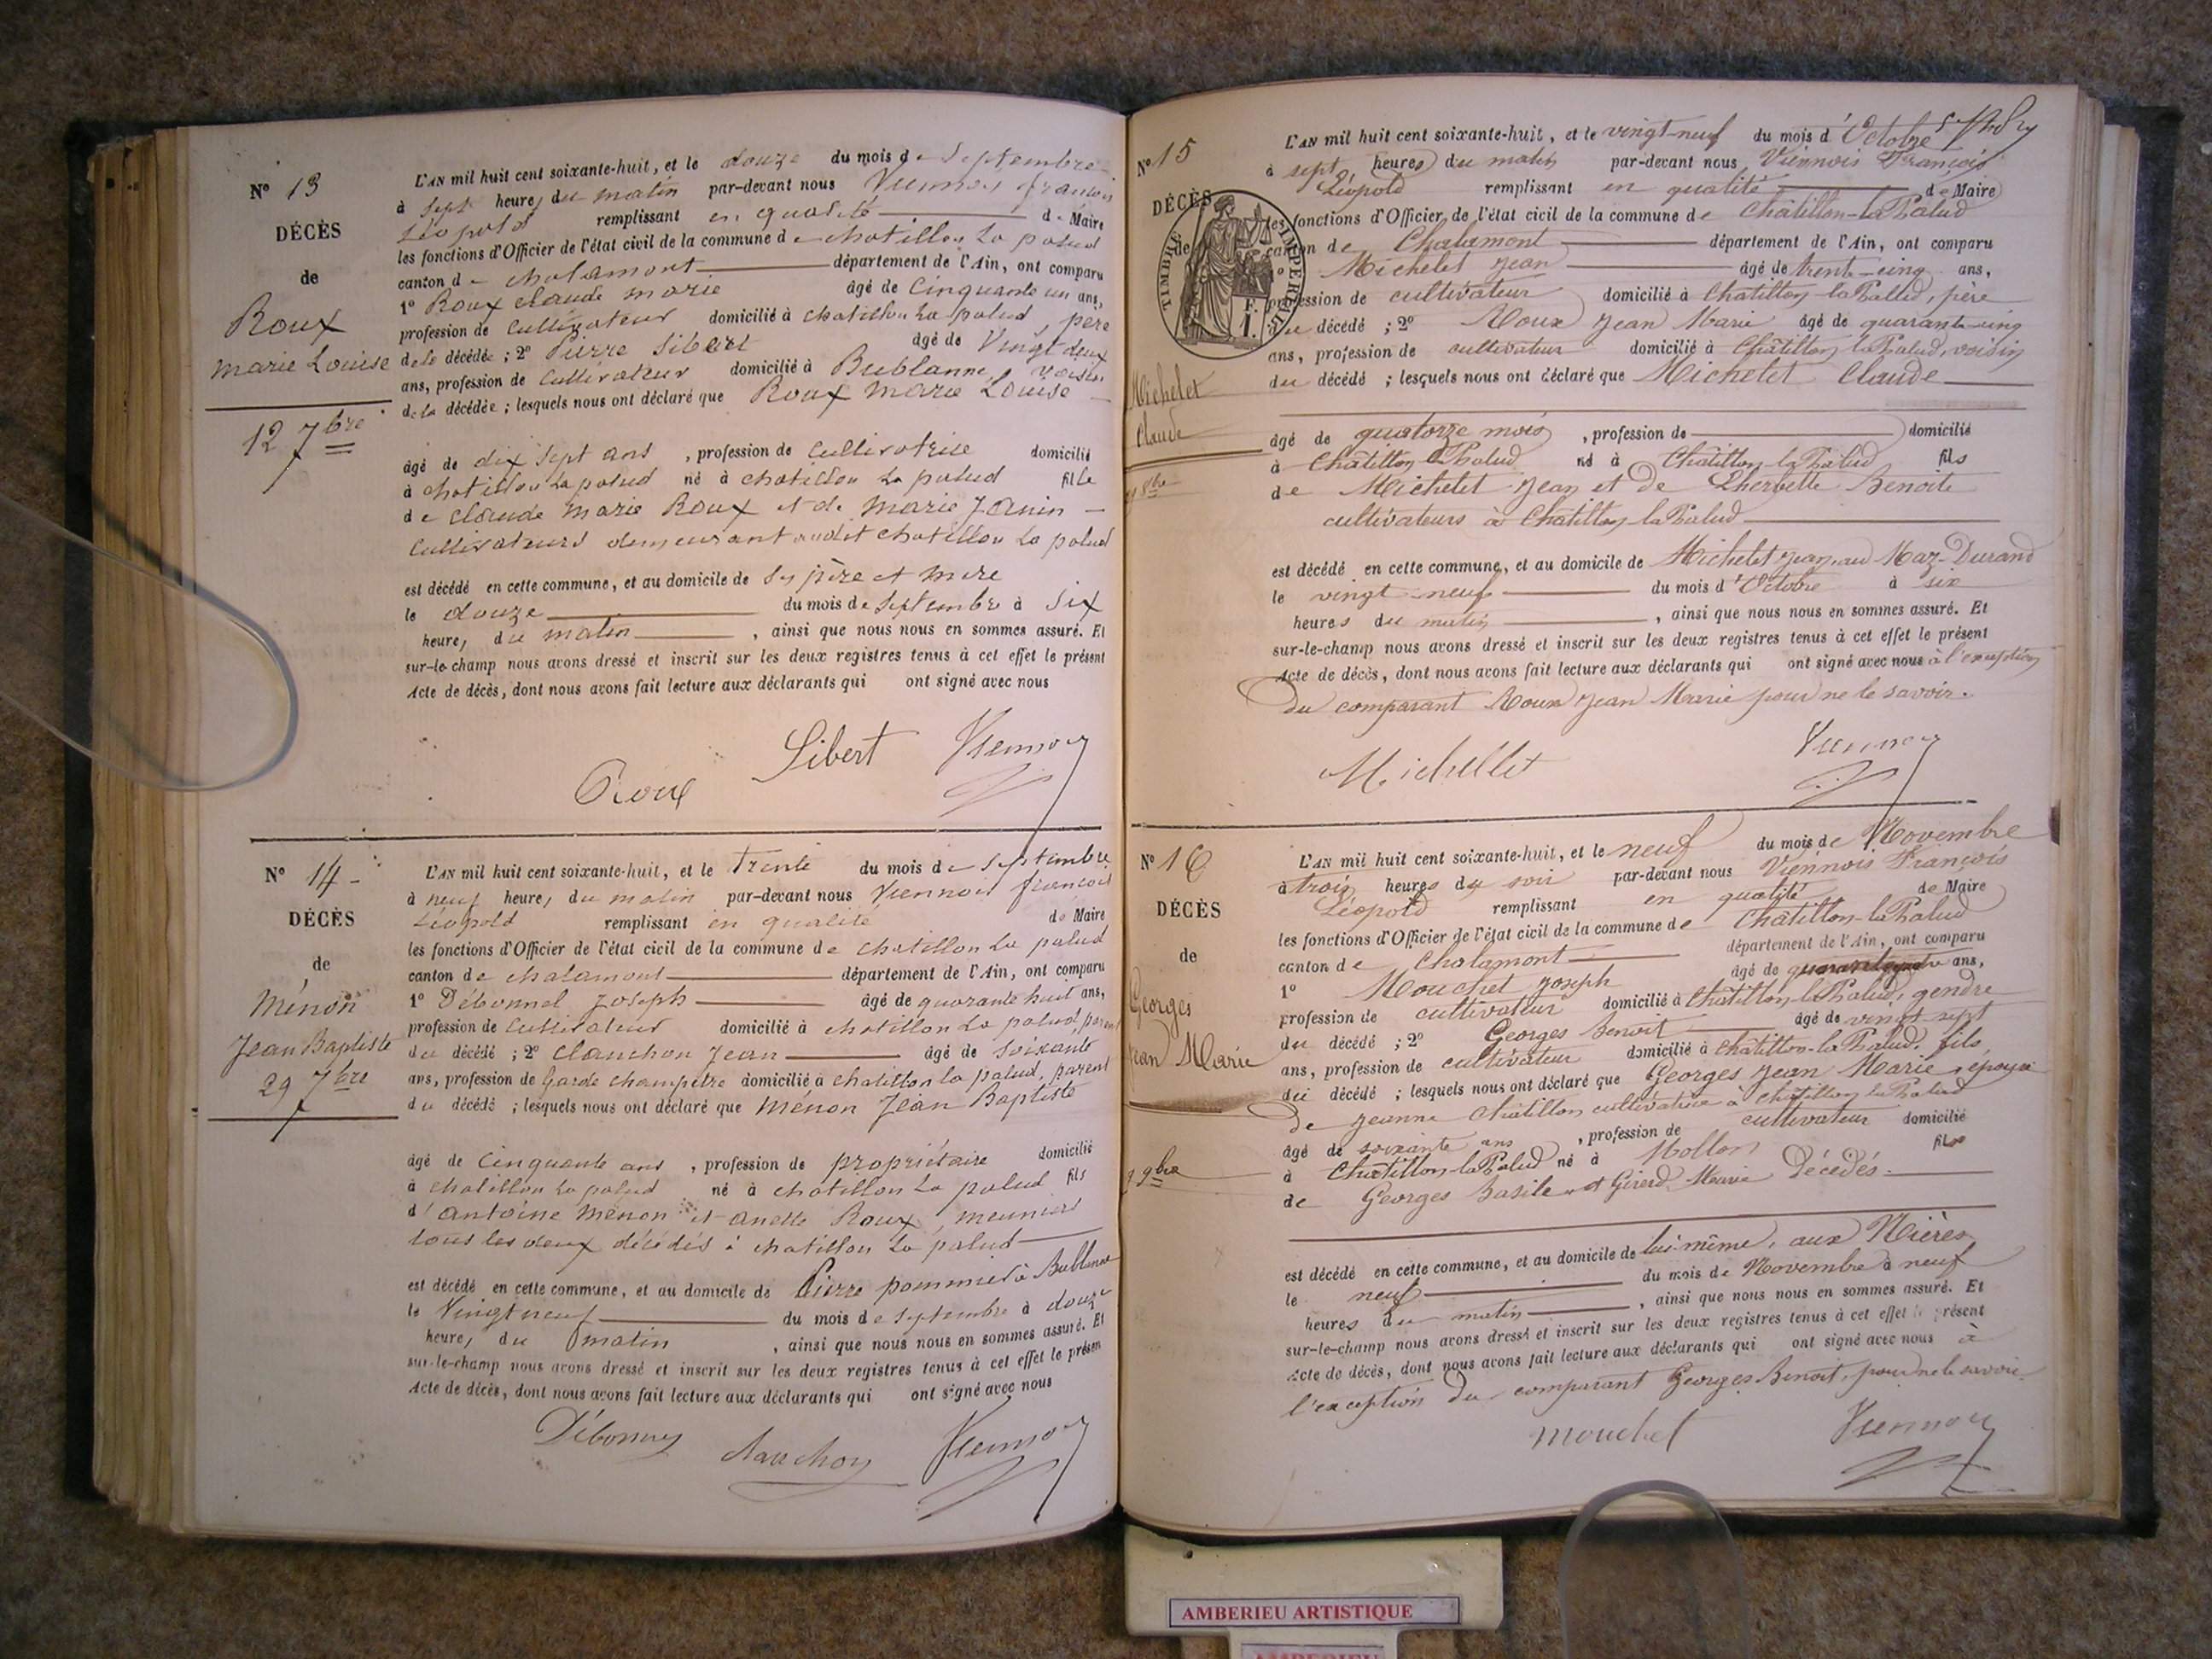 N° 13
DÉCÈS
de
Roux
Marie Louise
12 7bre
L'AN mil huit cent soixante-huit, et le douze du mois de Septembre
à sept heures du matin par-devant nous Viennois françois
Léopold remplissant en qualité de Maire
les fonctions d'Officier de l'état civil de la commune de chatillon la palud
canton de chalamont département de l'Ain, ont comparu
1° Roux claude marie âgé de Cinquante un ans,
profession de cultivateur domicilié à chatillon la palud père
de la décédée ; 2° Pierre Sibert âgé de Vingt deux
ans, profession de cultivateur domicilié à Bublanne, voisin
de la décédée ; lesquels nous ont déclaré que Roux Marie Louise
âgé de dix sept ans , profession de cultivatrice domicilié
à chatillon la palud né à chatillon la palud fille
de claude Marie Roux et de Marie Janin
cultivateurs demeurant audit chatillon la palud
est décédé en cette commune, et au domicile de ses père et mère
le douze du mois de Septembre à Six
heures du matin , ainsi que nous nous en sommes assuré. Et
sur-le-champ nous avons dressé et inscrit sur les deux registres tenus à cet effet le présent
Acte de décès, dont nous avons fait lecture aux déclarants qui ont signé avec nous
Sibert Viennois
Roux
N° 14
DÉCÈS
de
Ménon
Jean Baptiste
29 7bre
L'AN mil huit cent soixante-huit, et le Trente du mois de Septembre
à neuf heures du matin par-devant nous Viennois françois
Léopold remplissant en qualité de Maire
les fonctions d'Officier de l'état civil de la commune de chatillon la palud
canton de chalamont département de l'Ain, ont comparu
1° Débonnel Joseph âgé de quarante huit ans,
profession de cultivateur domicilié à chatillon la palud, parent
du décédé ; 2° Clanchon Jean âgé de Soixante
ans, profession de Garde champêtre domicilié à chatillon la palud, parent
du décédé ; lesquels nous ont déclaré que Ménon Jean Baptiste
âgé de Cinquante ans , profession de propriétaire domicilié
à chatillon la palud né à chatillon la palud fils
d'antoine Ménon et anette Roux, meuniers
tous les deux décédés à chatillon la palud
est décédé en cette commune, et au domicile de Pierre pommier à Bublanne
le Vingt neuf du mois de Septembre à douze
heures du matin , ainsi que nous nous en sommes assuré. Et
sur-le-champ nous avons dressé et inscrit sur les deux registres tenus à cet effet le présen
Acte de décès, dont nous avons fait lecture aux déclarants qui ont signé avec nous
Débonnel Clanchon Viennois
N° 15
DÉCÈS
de
TIMBRE IMPERIAL
1 F.
Michelet
Claude
L'AN mil huit cent soixante-huit, et le vingt-neuf du mois d'Octobre
à sept heures du matin par-devant nous Viennois François
Léopold remplissant en qualité de Maire
les fonctions d'Officier de l'état civil de la commune de Châtillon-la-Palud
canton de Chalamont département de l'Ain, ont comparu
1° Michelet Jean âgé de trente-cinq ans,
profession de cultivateur domicilié à Chatillon-la-Pallud, père
du décédé ; 2° Roux Jean Marie âgé de quarante-cinq
ans, profession de cultivateur domicilié à Châtillon la Palud, voisin
du décédé ; lesquels nous ont déclaré que Michelet Claude
âgé de quatorze mois , profession de domicilié
à Châtillon la Palud né à Châtillon-la-Palud fils
de Michelet Jean et de Lherbette Benoite
cultivateurs à Chatillon la Palud
est décédé en cette commune, et au domicile de Michelet Jean, au Maz-Durand
le vingt-neuf du mois d'Octobre à six
heures du matin , ainsi que nous nous en sommes assuré. Et
sur-le-champ nous avons dressé et inscrit sur les deux registres tenus à cet effet le présent
Acte de décès, dont nous avons fait lecture aux déclarants qui ont signé avec nous à l'exception
du comparant Roux Jean Marie pour ne le savoir.
Michellet Viennois
N° 16
DÉCÈS
de
Georges
Jean Marie
9 9bre
L'AN mil huit cent soixante-huit, et le neuf du mois de Novembre
à trois heures du soir par-devant nous Viennois François
Léopold remplissant en qualité de Maire
les fonctions d'Officier de l'état civil de la commune de Châtillon-la-Palud
canton de Chalamont département de l'Ain, ont comparu
1° Mouchet Joseph âgé de quarante ans,
profession de cultivateur domicilié à Châtillon-la-Palud, gendre
du décédé ; 2° Georges Benoit âgé de vingt sept
ans, profession de cultivateur domicilié à Châtillon-la-Palud, fils
du décédé ; lesquels nous ont déclaré que Georges Jean Marie, époux
de Jeanne Châtillon cultivatrice à Châtillon la Palud
âgé de soixante ans , profession de cultivateur domicilié
à Châtillon-la-Palud né à Mollon fils
de Georges Basile et Girerd Marie décédés.
est décédé en cette commune, et au domicile de lui-même, aux Mières
le neuf du mois de Novembre à neuf
heures du matin , ainsi que nous nous en sommes assuré. Et
sur-le-champ nous avons dressé et inscrit sur les deux registres tenus à cet effet le présent
Acte de décès, dont nous avons fait lecture aux déclarants qui ont signé avec nous à
l'exception du comparant Georges Benoit, pour ne le savoir.
mouchet Viennois
AMBERIEU ARTISTIQUE
AMBERIEU